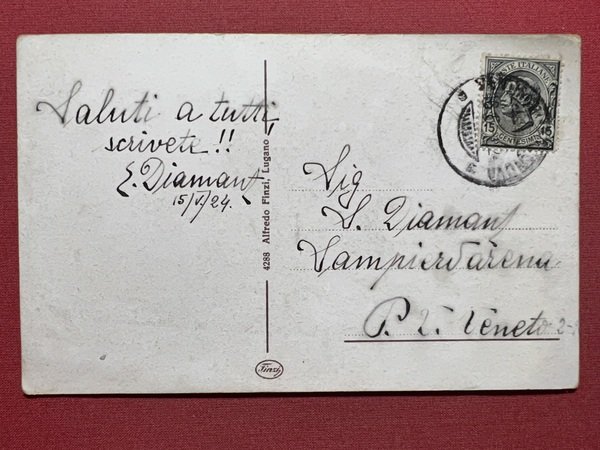 Saluti a tutti
scrivete!!
E. Diamant
15/V/24.
4288 Alfredo Finzi, Lugano
Finzi
Sig
S. Diamant
Sampierdarena
P. V. Veneto 2-
POSTE ITALIANE
15 CENTESIMI 15